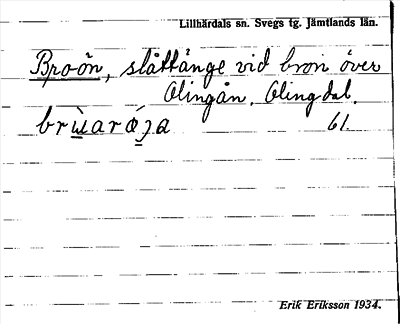 Lillhärdals sn. Svegs tg. Jämtlands län.
Bro-ön, slåttänge vid bron över
Olingån. Olingdal.
brùaröja 61.
Erik Eriksson 1934.